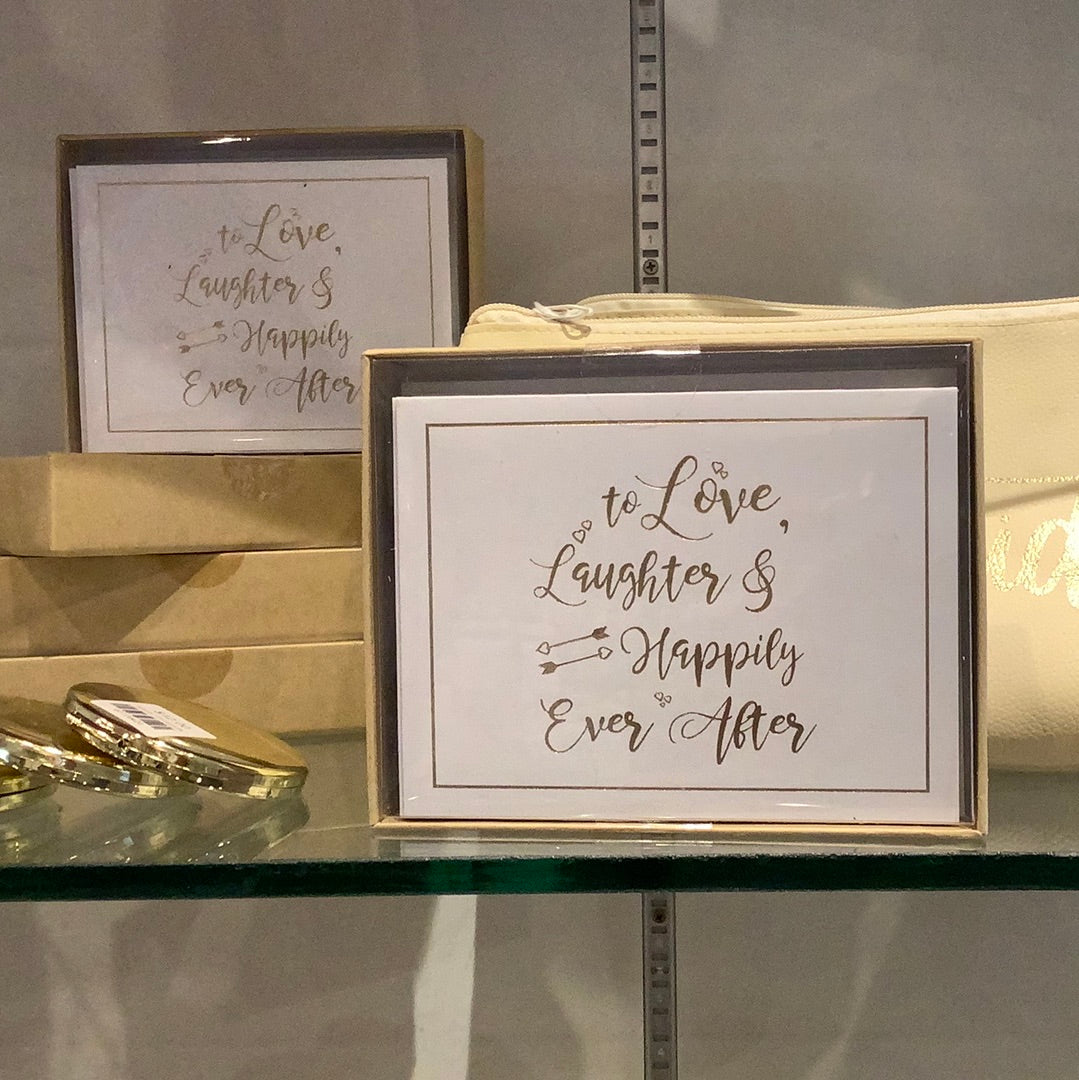 to Love,
Laughter &
Happily
Ever After
to Love,
Laughter &
Happily
Ever After